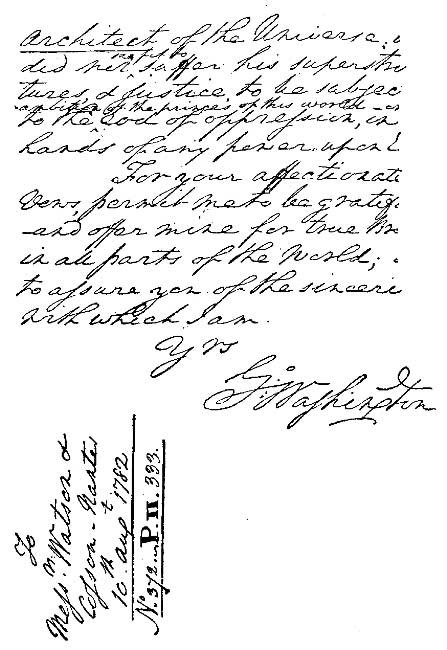 Architect of the Universe;
did never suffer his superstruc
tures, & justice, to be subjec
ambition of the princes of this world - or
to the rod of oppression, in
hands of any power upon
For your affectionate
Vows, permit me to be grateful
and offer mine for true Br
in all parts of the World;
to assure you of the sinceri
with which I am.
Yrs
Go: Washington
To
Messrs Watson &
Cosson - Nantes
10th augt 1782
No. 372. P. II. 333.